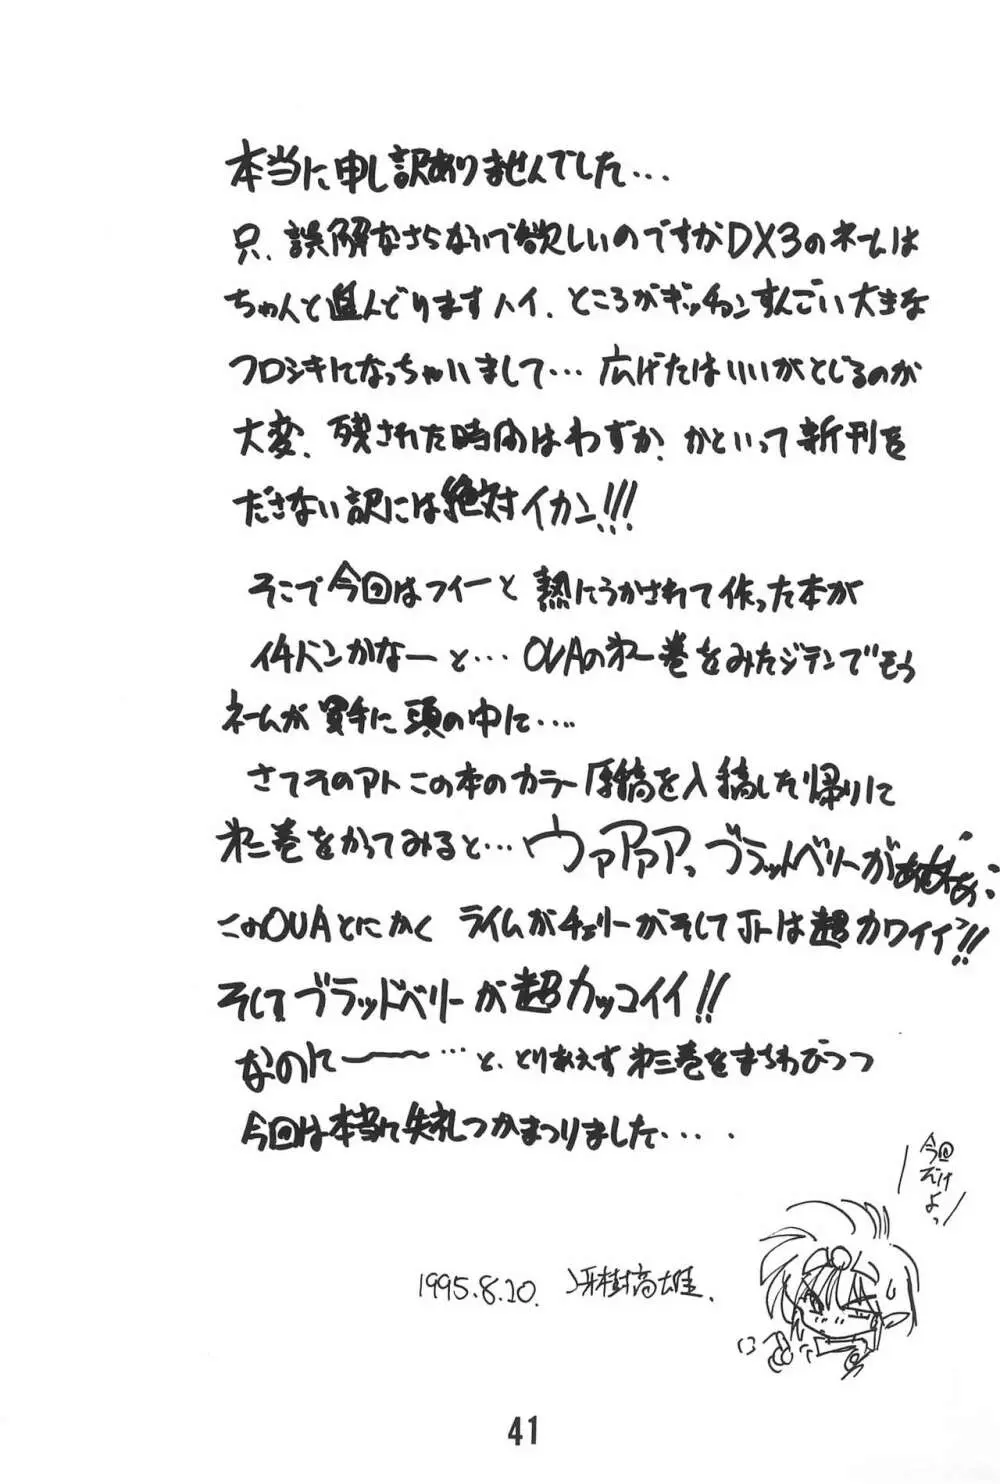 本当に申し訳ありませんでした...
只、誤解なさらないで欲しいのですがDX3のネームは
ちゃんと進んどりますハイ、ところがギッチョンすんごい大きな
フロシキになっちゃいまして... 広げたはいいがとじるのが
大変、残された時間はわずか、かといって新刊を
ださない訳には絶対イカン!!!
そこで今回はフイーと 熱にうかされて作った本が
イチバンかなーと... OVAの第一巻をみたジテンでもう
ネームが 頭の中に....
さてそのアトこの本のカラー原稿を入稿した帰りに
第二巻をかってみると... ウァアァアっ ブラッドベリーがぁぁぁぁ
このOVAとにかく ライムがチェリーがそして Jr.は超カワイイ!!
そしてブラッドベリーが超カッコイイ!!
なのに〜〜 ...と、とりあえず第三巻をまちわびつつ
今回は本当に失礼つかまつりました....
今回
だけ
よっ
1995.8.20. 冴樹高雄.
41